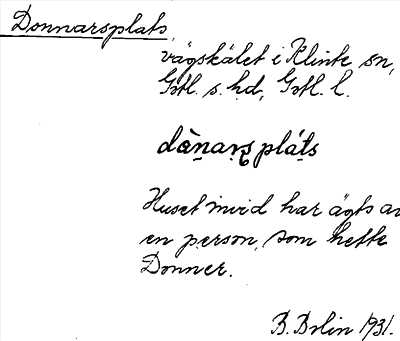 Donnarsplats,
vägskälet i Klinte sn,
Gotl. s. hd, Gotl. l.
dànarspláts
Huset invid har ägts av
en person, som hette
Donner.
B. Bolin 1931.